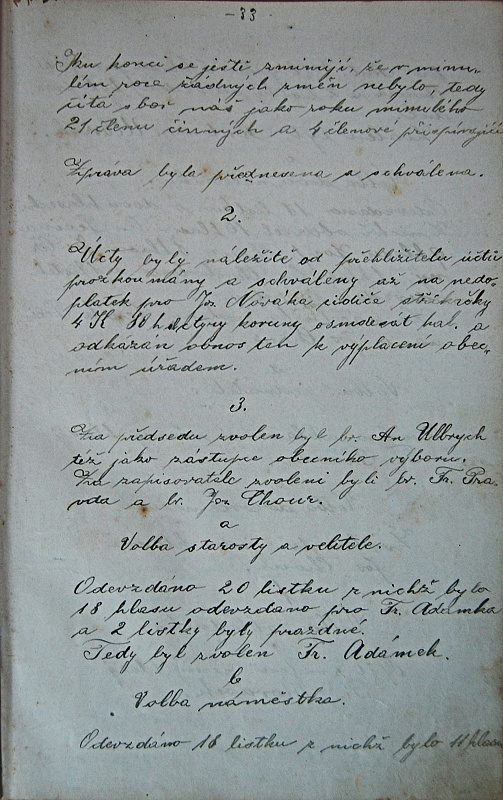 - 33 -
Ku konci se ještě zminuji, že v minu-
lém roce žádných změn nebylo, tedy
čítá sbor náš jako roku minulého
21 členu činných a 4 členove přispívající
Zpráva byla přednesena a schválena.
2.
Účty byly náležitě od přehlížitelu účtu
prozkoumány a schváleny až na nedo-
platek pro Jos. Nováka řidiče stříkačky
4 K 80 h čtyry koruny osmdesát hal. a
odkázan obnos ten k výplacení obec-
ním úřadem.
3.
Za předsedu zvolen byl br. An Ulbrych
též jako zástupce obecního výboru.
Za zapisovatele zvoleni byli br. Fr. Pra-
vda a br. Jos Chour.
a
Volba starosty a velitele.
Odevzdáno 20 lístku z nichž bylo
18 hlasu odevzdano pro Fr. Adamka
a 2 lístky byly prazdné.
Tedy byl zvolen Fr. Adámek.
b
Volba náměstka.
Odevzdáno 18 lístku z nichž bylo 11 hlasu